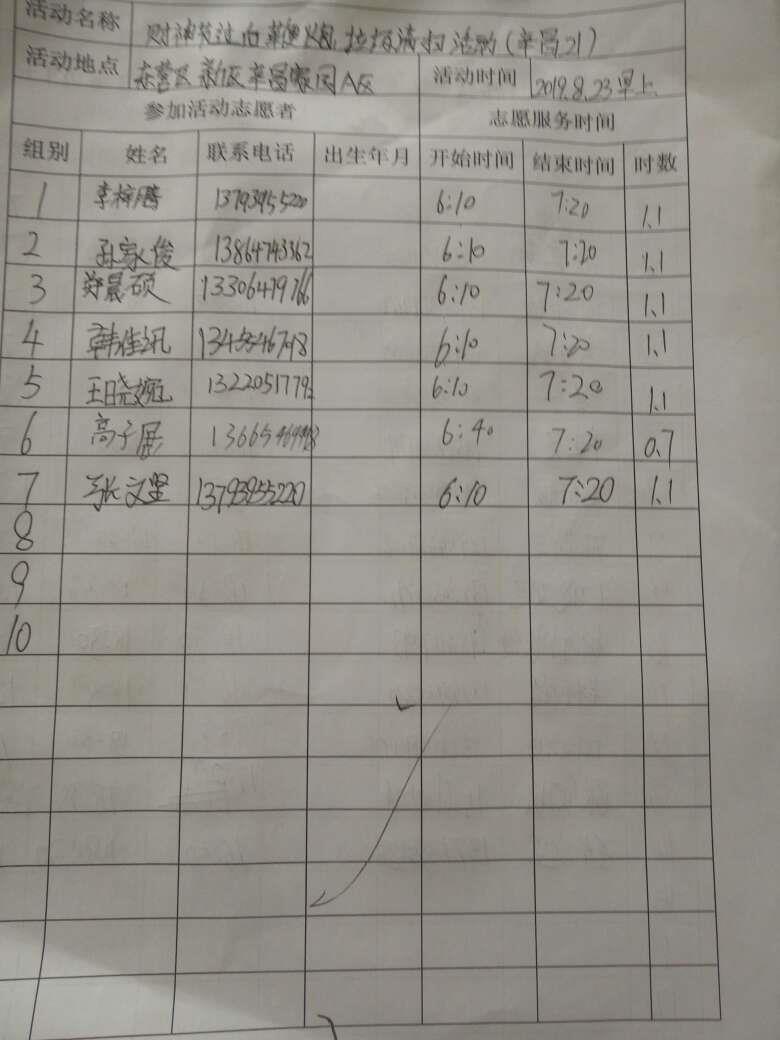 活动名称 财神节过后鞭炮垃圾清扫活动(辛昌21)
活动地点 东营区 新区辛昌家园A区 活动时间 2019.8.23早上
参加活动志愿者 志愿服务时间
组别 姓名 联系电话 出生年月 开始时间 结束时间 时数
1 李梓腾 13793955220 6:10 7:20 1.1
2 孙家俊 13864743362 6:10 7:20 1.1
3 郑晨硕 13306479766 6:10 7:20 1.1
4 韩佳讯 6:10 7:20 1.1
5 王晓婉 1322051779 6:10 7:20 1.1
6 高子展 6:40 7:20 0.7
7 张文坚 13793955220 6:10 7:20 1.1
8
9
10